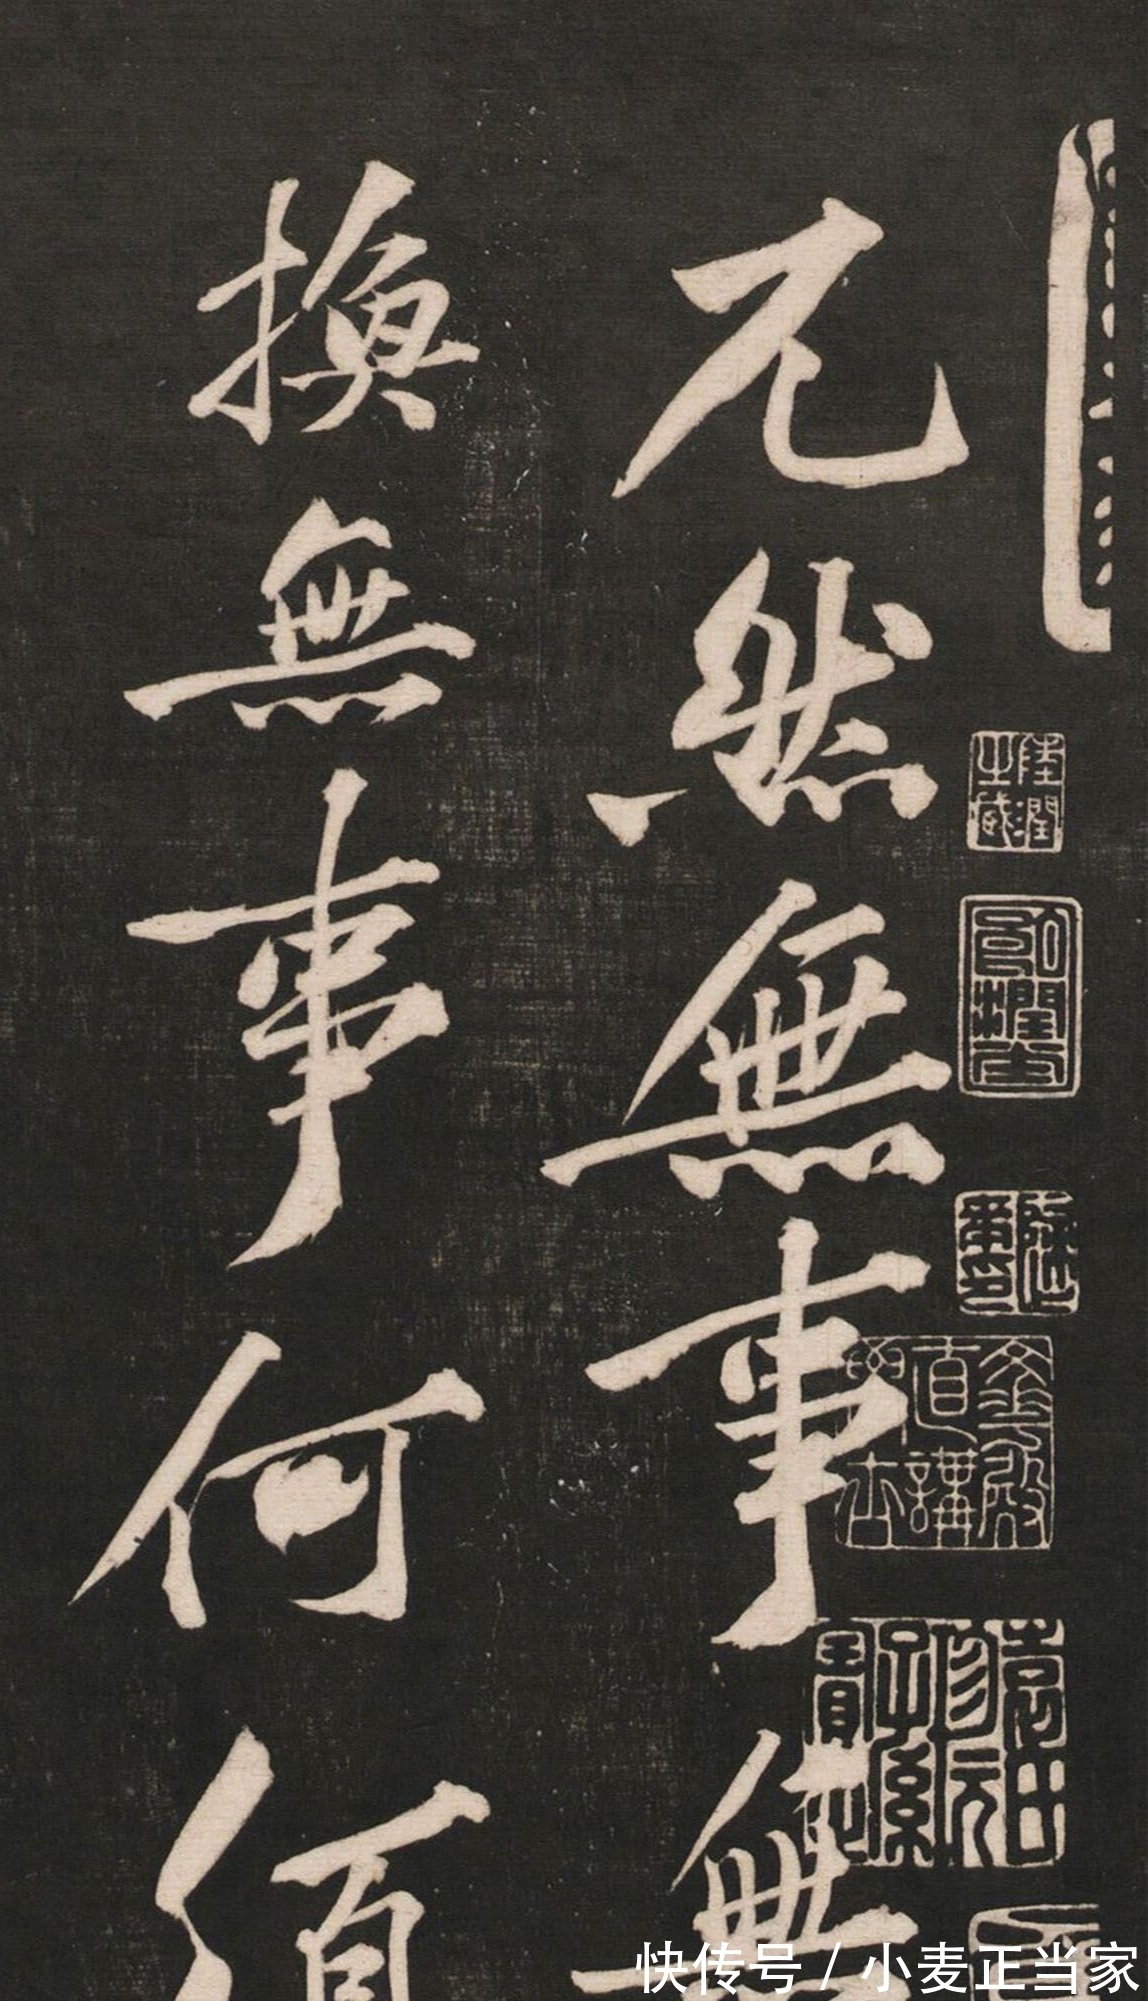 兀然無事無
換無事何須
陸潤之藏
快传号 / 小麦正当家